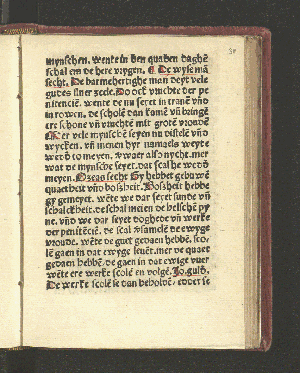 mynschen. wente in den quaden daghē
schal em de here vrygen. De wyse mā
secht. De barmehertighe man deyt vele
gudes siner zeele. Do ock vruchte der pe
nitenciē. wente de nu seyet in tranē vn̄
in rowen. de scholē dan komē vn̄ bringē
ere schone vn̄ vruchte mit grotē vroudē
Mer vele mynschē seyen nu distelē vn̄
wycken. vn̄ menen dar namaels weyte
werd to meyen. Auaer also nycht. mer
wat de mynsche seyet. dat scal he werd
meyen. Ozeas secht Gy hebbet gebuwet
quaetheit vn̄ boßheit. Boßheit hebbe
gy gemeyet. wēte we dar seyet sunde vn̄
schalckheit. de schal meien de helschē py
ne. vn̄ we dar seyet doghede vn̄ werke
der penitēciē. de scal vsamelē de ewyge
vroude. wēte de guet gedaen hebbē. sco
lē gaen in dat ewyge leuēt. mer de quaet
gedaen hebbē. de gaen in dat ewige vuer
wēte ere werke scolē en volgē. Jo. guld.
De werke scolē se dan beholdē. edder se